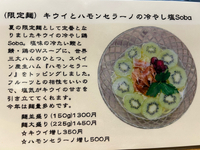 (限定麺) キウイとハモンセラーノの冷やし塩Soba
夏の限定麺として定番とな
りましたキウイの冷やし塩
Soba。塩味の冷たい鶏と
鯵・鶏のWスープに、世界
三大ハムのひとつ、スペイ
ン産生ハム『ハモンセラー
ノ』をトッピングしました。
フルーツとの相性もいいの
で、塩気がキウイの甘さを
引き立ててくれます。
今年は麺量多めです。
麺並盛り(150g)1300円
麺大盛り(225g)1450円
☆キウイ増し350円
☆ハモンセラーノ増し500円